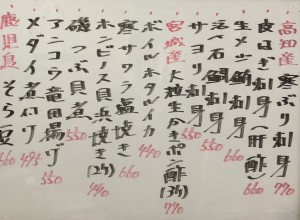 高知産 寒ぶり刺身 770
良はぎ刺身(肝酢) 660
生メジ鮪刺身 660
活べ石鯛刺身 550
サヨリ刺身 550
宮城産 大粒生かきポン酢(3ヶ) 770
ボイルホタルイカ 440
寒サワラ塩焼き 660
ホンビノス貝浜焼き(2ヶ) 440
磯つぶ貝煮 550
アンコウ竜田揚げ 550
メダイ煮付け 495
鹿児島 そら豆 660